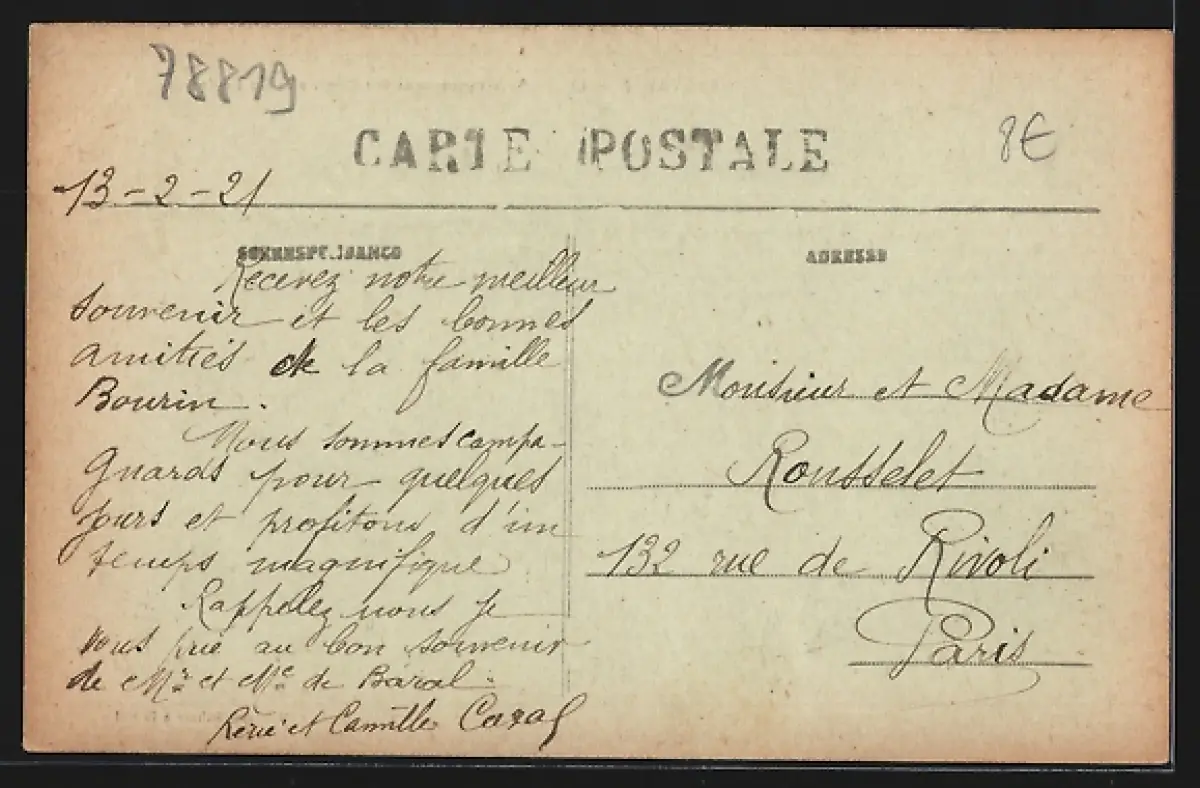 78819
CARTE POSTALE
8€
13-2-21
CORRESPONDANCE
ADRESSE
Recevez notre meilleur
souvenir et les bonnes
amitiés de la famille
Bourin.
Nous sommes campa-
gnards pour quelques
jours et profitons d'un
temps magnifique
Rappelez nous je
vous prie au bon souvenir
de Mr et Me de Baral.
et Camille
Monsieur et Madame
Rousselet
132 rue de Rivoli
Paris